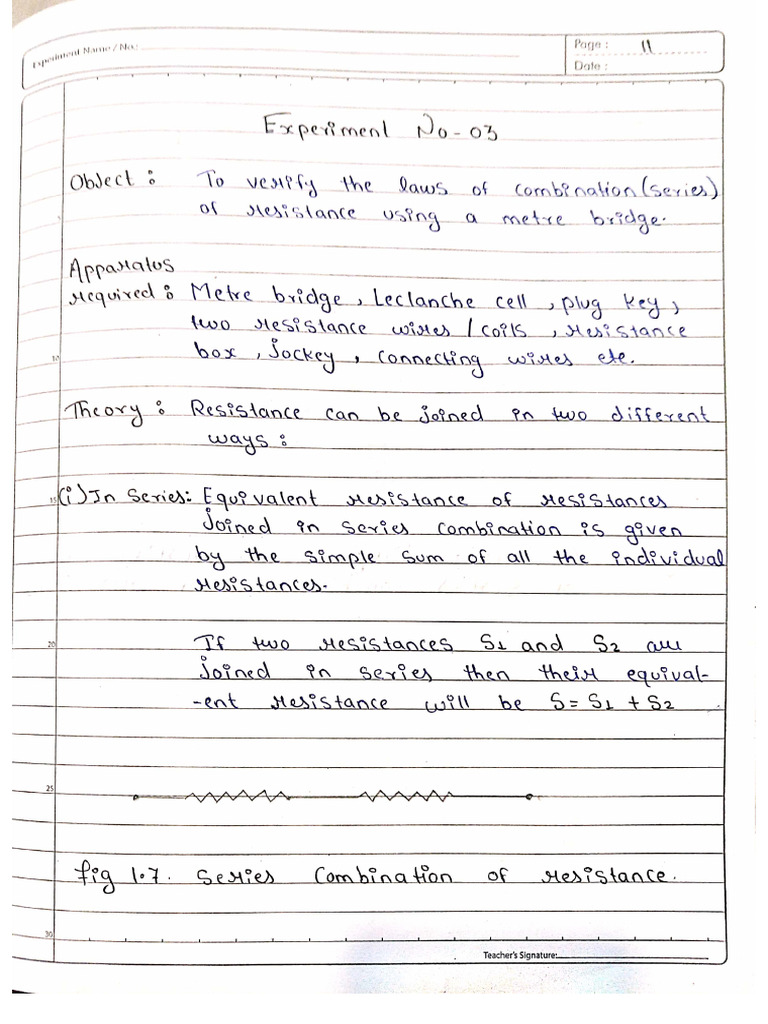 Experiment Name / No.:
Page : 11
Date :
Experiment No-03
Object : To verify the laws of combination (series)
of resistance using a metre bridge.
Apparatus
required : Metre bridge, Leclanche cell, plug key,
two resistance wires / coils, resistance
10
box, Jockey, connecting wires etc.
Theory : Resistance can be joined in two different
ways :
15
(i) In Series: Equivalent resistance of resistances
joined in series combination is given
by the simple sum of all the individual
resistances.
20
If two resistances S1 and S2 are
joined in series then their equival-
-ent resistance will be S = S1 + S2
25
fig 1.7. Series Combination of resistance.
30
Teacher's Signature: